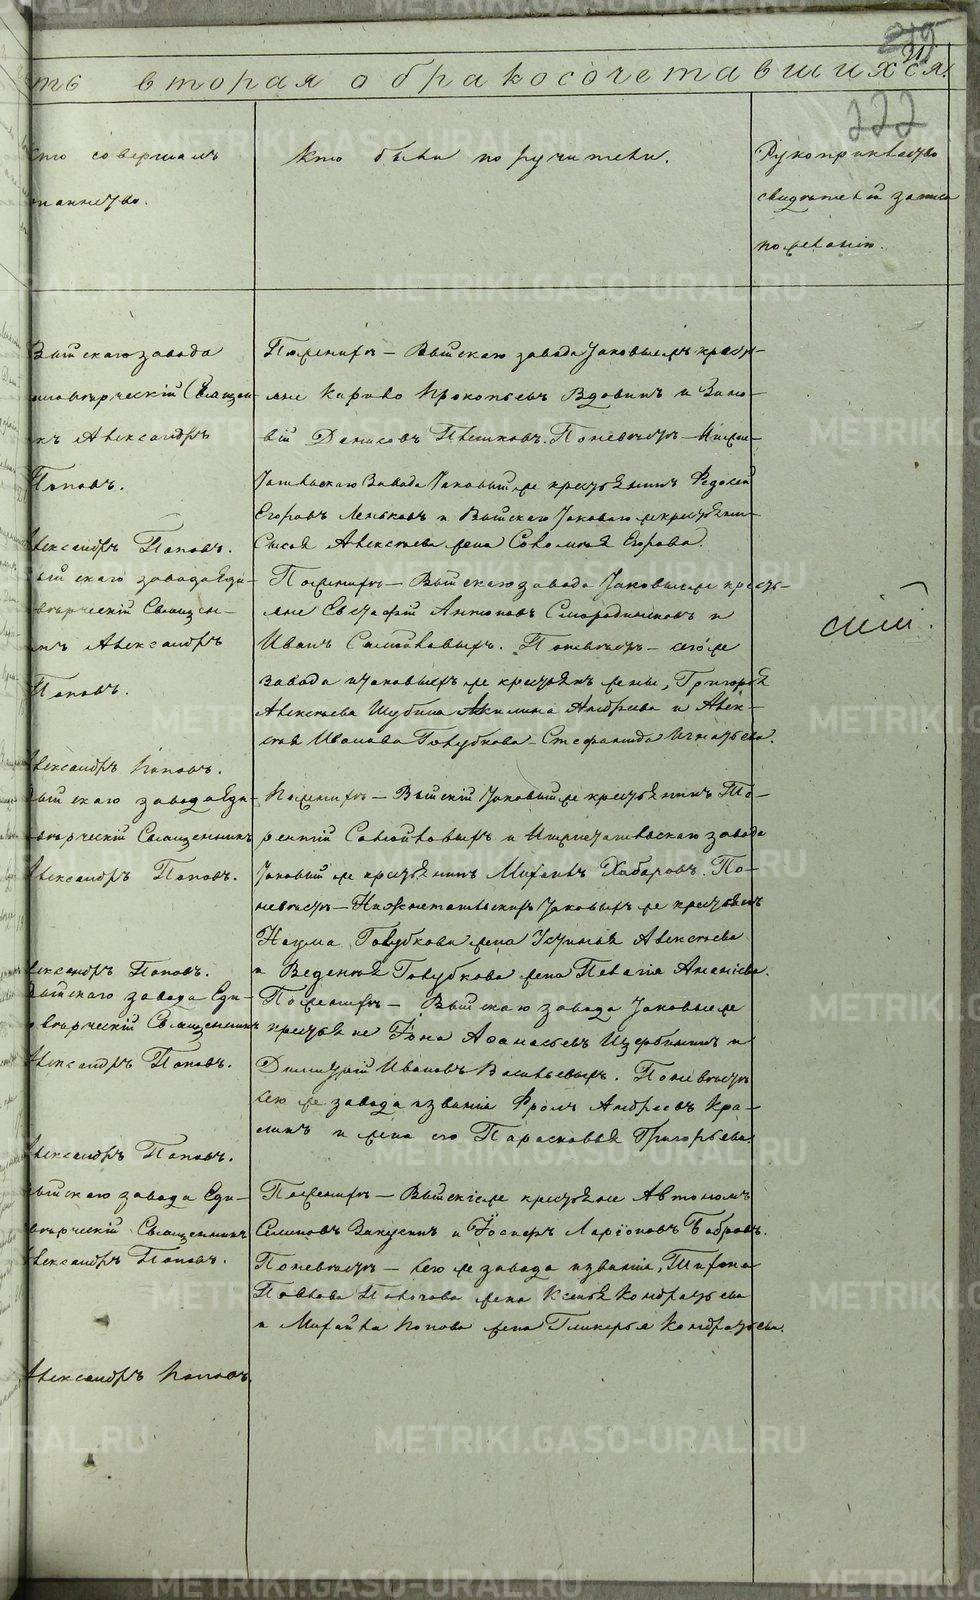 ть вторая о бракосочетавшихся.
222
кто совершалъ
таинство.
Кто были поручители.
Рукоприкладство
свидѣтелей записи
по желанію.
Выйскаго завода
Единовѣрческій Священ-
никъ Александръ
Поповъ.
Александръ Поповъ.
По женихѣ – Выйскаго завода заковые жъ кресть-
яне Карпъ Прокопьевъ Вдовинъ и Зино-
вій Денисовъ Пѣшковъ. По невѣстѣ – Нижне-
Тагильскаго Завода заковый же крестьянинъ Федосей
Егоровъ Леньковъ и Выйскаго заковаго же крестьянина
Сысоя Алексѣева жена Соломія Егорова.
Выйскаго завода Еди-
новѣрческій Священ-
никъ Александръ
Поповъ.
Александръ Поповъ.
По женихѣ – Выйскаго завода заковые же кресть-
яне Евстафій Антоновъ Смородинниковъ и
Иванъ Самойловыхъ. По невѣстѣ – сего же
завода и заковыхъ же крестьянъ жены, Григорья
Алексѣева Шубина Акилина Андреева и Алек-
сѣя Иванова Голубкова Стефанида Игнатьева.
сій.
Выйскаго завода Еди-
новѣрческій Священникъ
Александръ Поповъ.
Александръ Поповъ.
По женихѣ – Выйскій заковый же крестьянинъ Те-
рентій Самойловыхъ и Нижнетагильскаго завода
заковый же крестьянинъ Михаилъ Хабаровъ. По-
невѣстѣ – Нижнетагильскихъ заковыхъ же крестьянъ
Наума Голубкова жена Устинья Алексѣева
и Веденея Голубкова жена Пелагія Ананіева.
Выйскаго завода Еди-
новѣрческій Священникъ
Александръ Поповъ.
Александръ Поповъ.
По женихѣ – Выйскаго завода заковые же
крестьяне Іона Аѳанасьевъ Щербининъ и
Димитрій Ивановъ Васильевыхъ. По невѣстѣ
сего же завода и званія Фролъ Андреевъ Кра-
синъ и жена его Парасковья Григорьева
Выйскаго завода Еди-
новѣрческій Священникъ
Александръ Поповъ.
Александръ Поповъ.
По женихѣ – Выйскіе же крестьяне Автономъ
Семеновъ Закусинъ и Іосифъ Ларіоновъ Бобровъ.
По невѣстѣ – сего же завода и званія, Тифона
Павлова Полочова жена Ксенья Кондратьева
и Михайла Попова жена Гликерья Кондратьева.